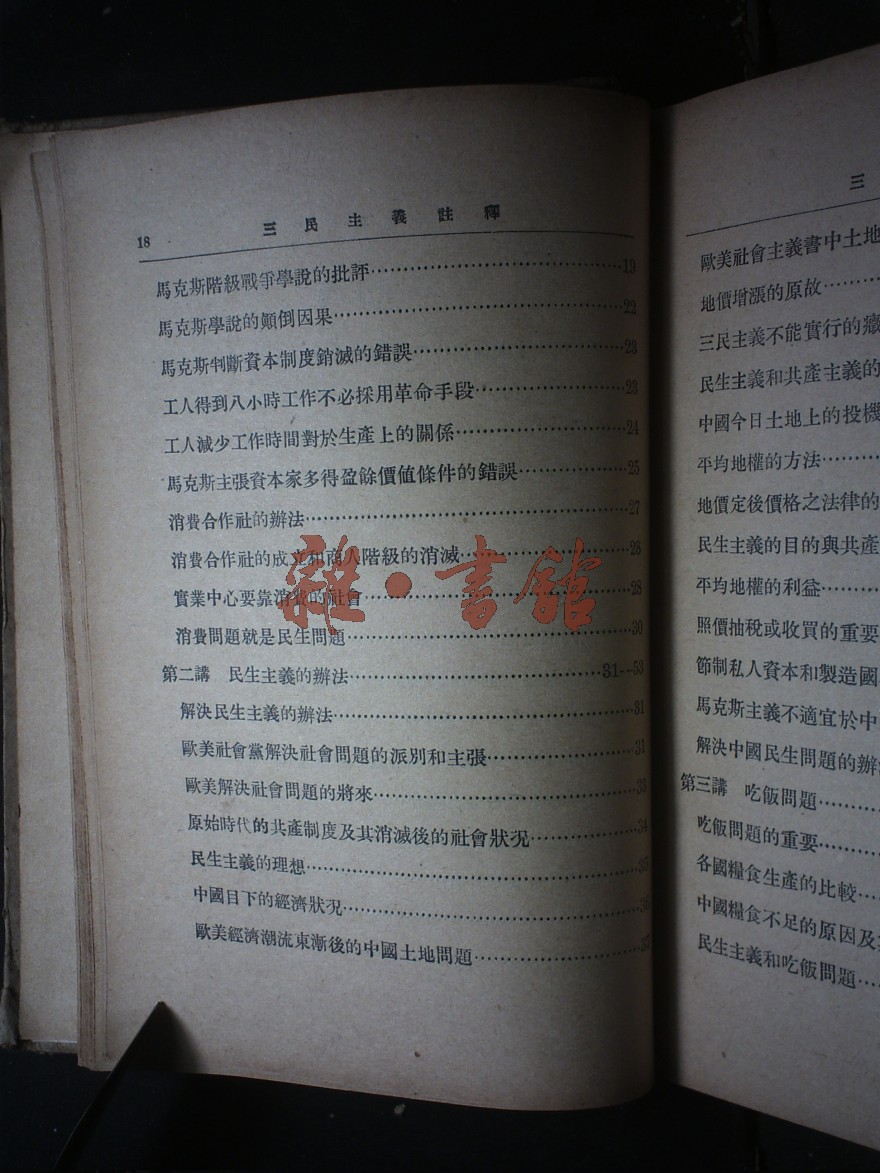 18 三民主義註釋
馬克斯階級戰爭學說的批評…………19
馬克斯學說的顚倒因果…………22
馬克斯判斷資本制度銷滅的錯誤…………23
工人得到八小時工作不必採用革命手段…………23
工人減少工作時間對於生產上的關係…………24
馬克斯主張資本家多得盈餘價値條件的錯誤…………25
消費合作社的辦法…………27
消費合作社的成立和商人階級的消滅…………28
實業中心要靠消費的社會…………28
消費問題就是民生問題…………30
第二講 民生主義的辦法…………31--53
解決民生主義的辦法…………31
歐美社會黨解決社會問題的派別和主張…………31
歐美解決社會問題的將來…………33
原始時代的共產制度及其消滅後的社會狀況…………34
民生主義的理想…………35
中國目下的經濟狀況…………36
歐美經濟潮流東漸後的中國土地問題…………37
雜·書館
三
歐美社會主義書中土地
地價增漲的原故…………
三民主義不能實行的癥
民生主義和共產主義的
中國今日土地上的投機
平均地權的方法…………
地價定後價格之法律的
民生主義的目的與共產
平均地權的利益…………
照價抽稅或收買的重要
節制私人資本和製造國
馬克斯主義不適宜於中
解決中國民生問題的辦
第三講 吃飯問題…………
吃飯問題的重要…………
各國糧食生產的比較…………
中國糧食不足的原因及
民生主義和吃飯問題…………